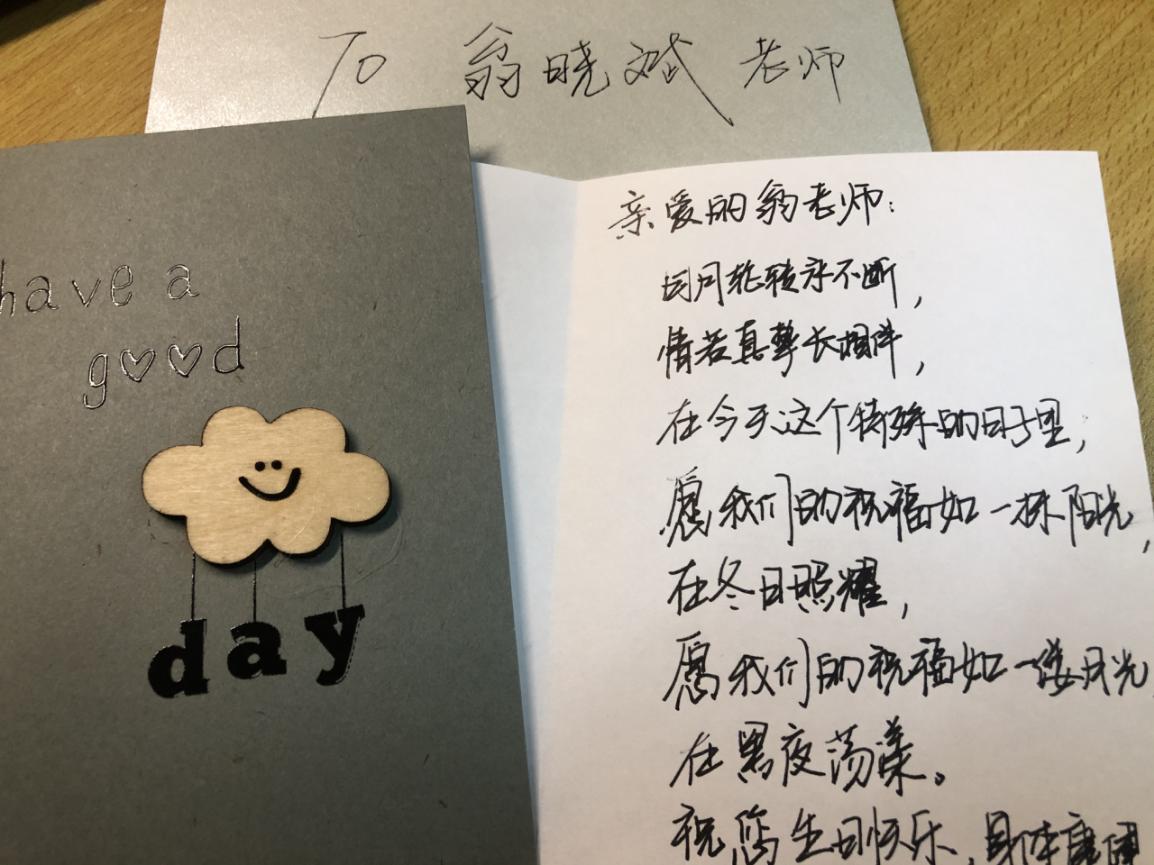 To 翁晓斌 老师
have a
good
day
亲爱的翁老师:
日月轮转永不断,
情若真挚长相伴,
在今天这个特殊的日子里,
愿我们的祝福如一抹阳光,
在冬日照耀,
愿我们的祝福如一缕月光
在黑夜荡漾。
祝您生日快乐、身体康健